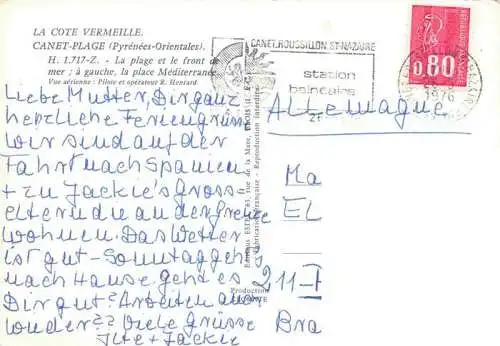 LA COTE VERMEILLE.
CANET-PLAGE (Pyrénées-Orientales).
H. 1.717-Z. - La plage et le front de
mer ; à gauche, la place Méditerranée
Vue aérienne : Pilote et opérateur R. Henrard
CANET.ROUSSILLON ST-NAZAIRE
station
balnéaire
0,80
1976
Allemagne
Liebe Mutter, Dir ganz
herzliche Feriengrüsse
wir sind auf der
Fahrt nach Spanien
+ zu Jackie's Gross-
eltern die an der Grenze
wohnen. Das Wetter
ist gut - Sonntag gehts
nach Hause geht es
Dir gut? Arbeiten
??? Viele Grüsse
+ Jackie
rue de la Mare,
Fabrication Française - Reproduction interdite
Production
Ma
EL
211-I
Bra